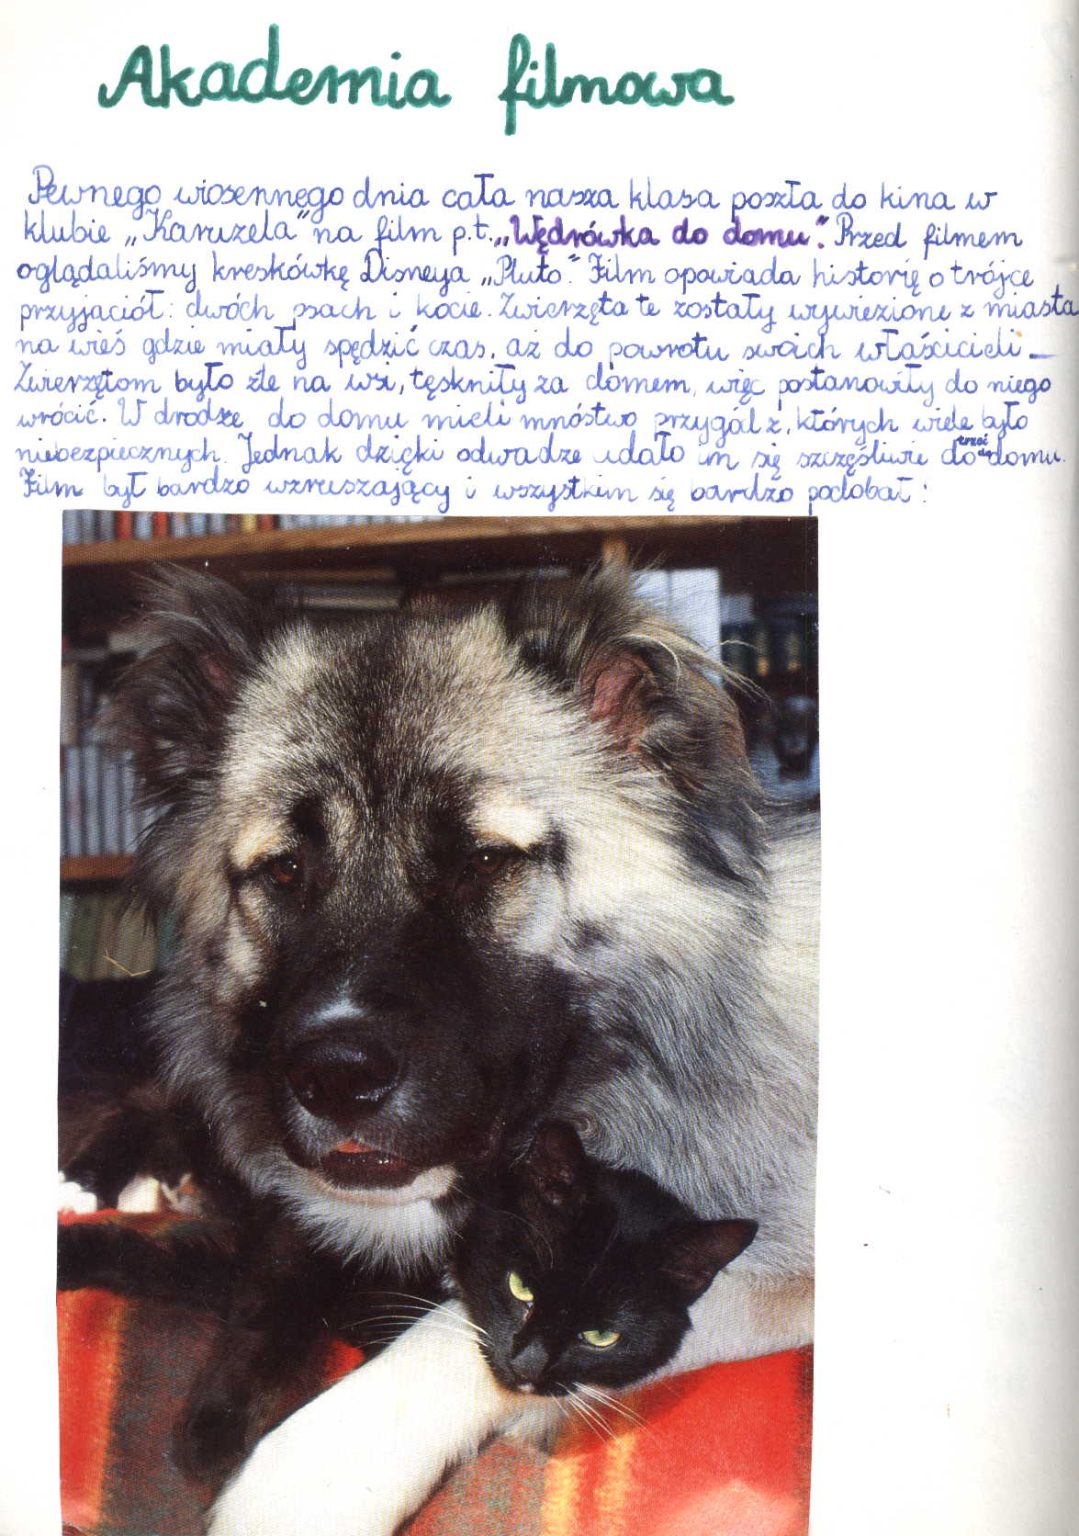 Akademia filmowa
Pewnego wiosennego dnia cała nasza klasa poszła do kina w
klubie „Karuzela" na film p.t. „Wędrówka do domu". Przed filmem
oglądaliśmy kreskówkę Disneya „Pluto". Film opowiada historię o trójce
przyjaciół: dwóch psach i kocie. Zwierzęta te zostały wywiezione z miasta
na wieś gdzie miały spędzić czas, aż do powrotu swoich właścicieli
Zwierzętom było źle na wsi, tęskniły za domem, więc postanowiły do niego
wrócić. W drodze do domu mieli mnóstwo przygód z, których wiele było
niebezpiecznych. Jednak dzięki odwadze udało im się szczęśliwie do domu.
Film był bardzo wzruszający i wszystkim się bardzo podobał!